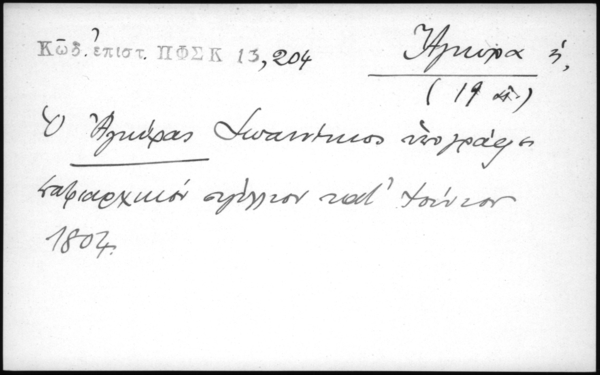 Κῶδ. ἐπιστ. ΠΦΣΚ 13,204
Ἄγκυρα ἡ,
(19 α.)
Ὁ Ἀγκύρας Ἰωαννίκιος ὑπογράφει
πατριαρχικόν σιγίλλιον κατ' Ἰούνιον
1804.